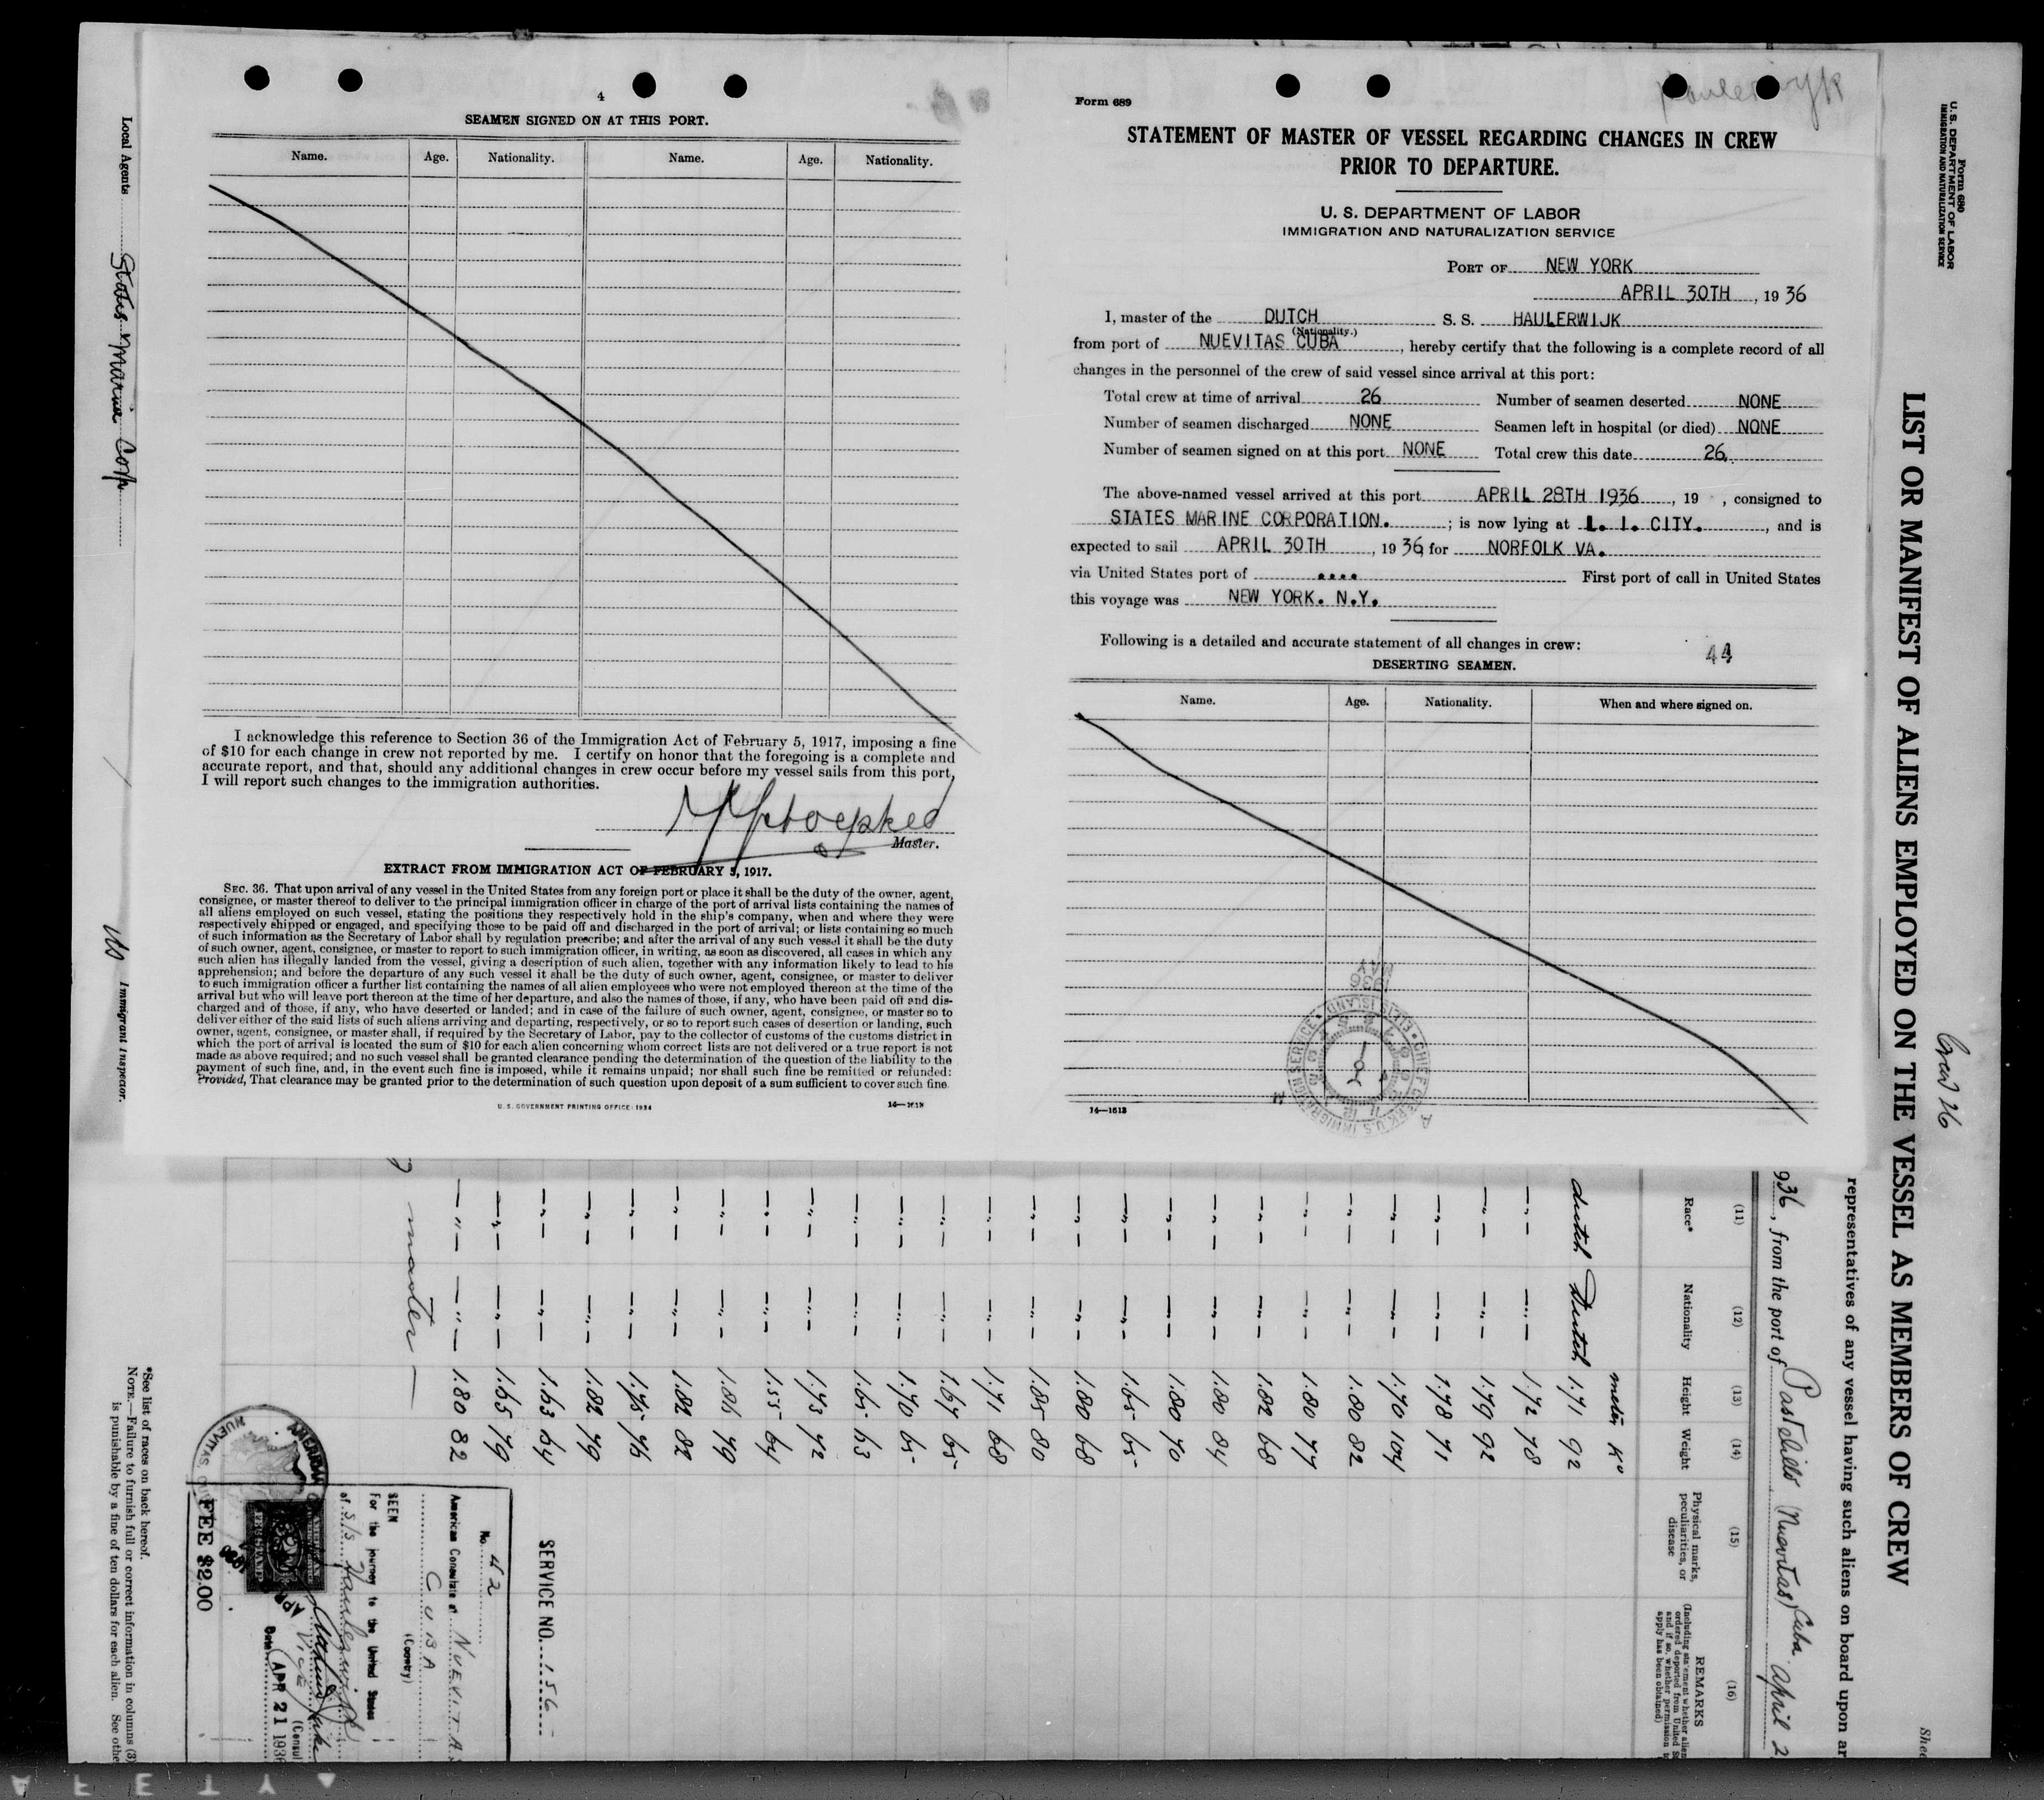 4
SEAMEN SIGNED ON AT THIS PORT.
Name. Age. Nationality. Name. Age. Nationality.
I acknowledge this reference to Section 36 of the Immigration Act of February 5, 1917, imposing a fine
of $10 for each change in crew not reported by me. I certify on honor that the foregoing is a complete and
accurate report, and that, should any additional changes in crew occur before my vessel sails from this port,
I will report such changes to the immigration authorities.
Master.
EXTRACT FROM IMMIGRATION ACT OF FEBRUARY 5, 1917.
SEC. 36. That upon arrival of any vessel in the United States from any foreign port or place it shall be the duty of the owner, agent,
consignee, or master thereof to deliver to the principal immigration officer in charge of the port of arrival lists containing the names of
all aliens employed on such vessel, stating the positions they respectively hold in the ship's company, when and where they were
respectively shipped or engaged, and specifying those to be paid off and discharged in the port of arrival; or lists containing so much
of such information as the Secretary of Labor shall by regulation prescribe; and after the arrival of any such vessel it shall be the duty
of such owner, agent, consignee, or master to report to such immigration officer, in writing, as soon as discovered, all cases in which any
such alien has illegally landed from the vessel, giving a description of such alien, together with any information likely to lead to his
apprehension; and before the departure of any such vessel it shall be the duty of such owner, agent, consignee, or master to deliver
to such immigration officer a further list containing the names of all alien employees who were not employed thereon at the time of the
arrival but who will leave port thereon at the time of her departure, and also the names of those, if any, who have been paid off and dis-
charged and of those, if any, who have deserted or landed; and in case of the failure of such owner, agent, consignee, or master so to
deliver either of the said lists of such aliens arriving and departing, respectively, or so to report such cases of desertion or landing, such
owner, agent, consignee, or master shall, if required by the Secretary of Labor, pay to the collector of customs of the customs district in
which the port of arrival is located the sum of $10 for each alien concerning whom correct lists are not delivered or a true report is not
made as above required; and no such vessel shall be granted clearance pending the determination of the question of the liability to the
payment of such fine, and, in the event such fine is imposed, while it remains unpaid; nor shall such fine be remitted or refunded:
Provided, That clearance may be granted prior to the determination of such question upon deposit of a sum sufficient to cover such fine.
U. S. GOVERNMENT PRINTING OFFICE: 1934
Form 689
STATEMENT OF MASTER OF VESSEL REGARDING CHANGES IN CREW
PRIOR TO DEPARTURE.
U. S. DEPARTMENT OF LABOR
IMMIGRATION AND NATURALIZATION SERVICE
PORT OF NEW YORK
APRIL 30TH, 1936
I, master of the DUTCH S. S. HAULERWIJK
(Nationality.)
from port of NUEVITAS CUBA, hereby certify that the following is a complete record of all
changes in the personnel of the crew of said vessel since arrival at this port:
Total crew at time of arrival 26 Number of seamen deserted NONE
Number of seamen discharged NONE Seamen left in hospital (or died) NONE
Number of seamen signed on at this port NONE Total crew this date 26
The above-named vessel arrived at this port APRIL 28TH 1936, 19 , consigned to
STATES MARINE CORPORATION. ; is now lying at L. I. CITY. , and is
expected to sail APRIL 30TH, 1936 for NORFOLK VA.
via United States port of .... First port of call in United States
this voyage was NEW YORK. N.Y.
Following is a detailed and accurate statement of all changes in crew: 44
DESERTING SEAMEN.
Name. Age. Nationality. When and where signed on.
1936
CHIEF CLERK U.S. IMMIGRATION SERVICE ELLIS ISLAND
14—1513
Form 680
U. S. DEPARTMENT OF LABOR
IMMIGRATION AND NATURALIZATION SERVICE
Crew 26
LIST OR MANIFEST OF ALIENS EMPLOYED ON THE VESSEL AS MEMBERS OF CREW
representatives of any vessel having such aliens on board upon ar
936, from the port of Pastelillo (Nuevitas) Cuba April 2
(11) (12) (13) (14) (15) (16)
Race* Nationality Height Weight Physical marks, peculiarities, or disease REMARKS
dutch Dutch 1.71 92
—"— —"— 1.72 78
—"— —"— 1.79 92
—"— —"— 1.78 71
—"— —"— 1.70 104
—"— —"— 1.80 82
—"— —"— 1.80 77
—"— —"— 1.82 68
—"— —"— 1.80 84
—"— —"— 1.80 70
—"— —"— 1.65 65
—"— —"— 1.80 68
—"— —"— 1.85 80
—"— —"— 1.71 68
—"— —"— 1.67 65
—"— —"— 1.70 65
—"— —"— 1.65 63
—"— —"— 1.73 72
—"— —"— 1.55 64
—"— —"— 1.86 79
—"— —"— 1.82 82
—"— —"— 1.75 76
—"— —"— 1.82 79
—"— —"— 1.63 64
—"— —"— 1.65 79
—"— —"— 1.80 82
master
SERVICE NO. 156
No. 42
American Consulate at NUEVITAS
CUBA
(Country)
SEEN
For the journey to the United States
of S/S Haulerwijk
Date APR 21 1936
FEE $2.00
*See list of races on back hereof.
NOTE.—Failure to furnish full or correct information in columns (3)
is punishable by a fine of ten dollars for each alien. See othe
Local Agents States Marine Corp
Immigrant Inspector.